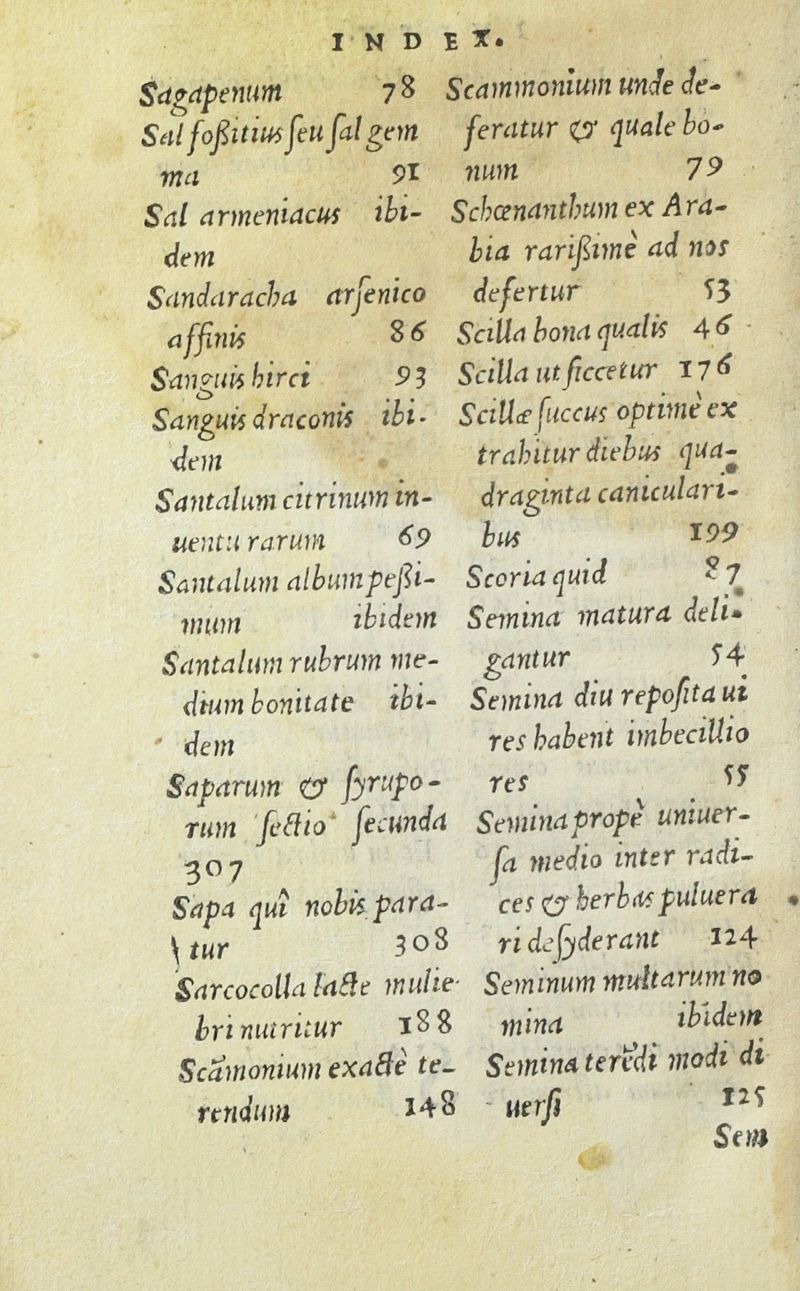 INDEX.
Sagapenum 78
Sal foßitius seu sal gem
ma 91
Sal armeniacus ibi-
dem
Sandaracha arsenico
affinis 86
Sanguis hirci 93
Sanguis draconis ibi-
dem
Santalum citrinum in-
uentu rarum 69
Santalum album peßi-
mum ibidem
Santalum rubrum me-
dium bonitate ibi-
dem
Saparum & syrupo-
rum sectio secunda
307
Sapa quî nobis para-
tur 308
Sarcocolla lacte mulie-
bri nutritur 188
Scāmonium exactè te-
rendum 148
Scammonium unde de-
feratur & quale bo-
num 79
Schœnanthum ex Ara-
bia rarißimè ad nos
defertur 53
Scilla bona qualis 46
Scilla ut siccetur 176
Scillæ succus optimè ex
trahitur diebus qua-
draginta caniculari-
bus 199
Scoria quid 87
Semina matura deli-
gantur 54
Semina diu reposita ui
res habent imbecillio
res 55
Semina propè uniuer-
sa medio inter radi-
ces & herbas puluera
ri desyderant 124
Seminum multarum no
mina ibidem
Semina terēdi modi di
uersi 125
Sem